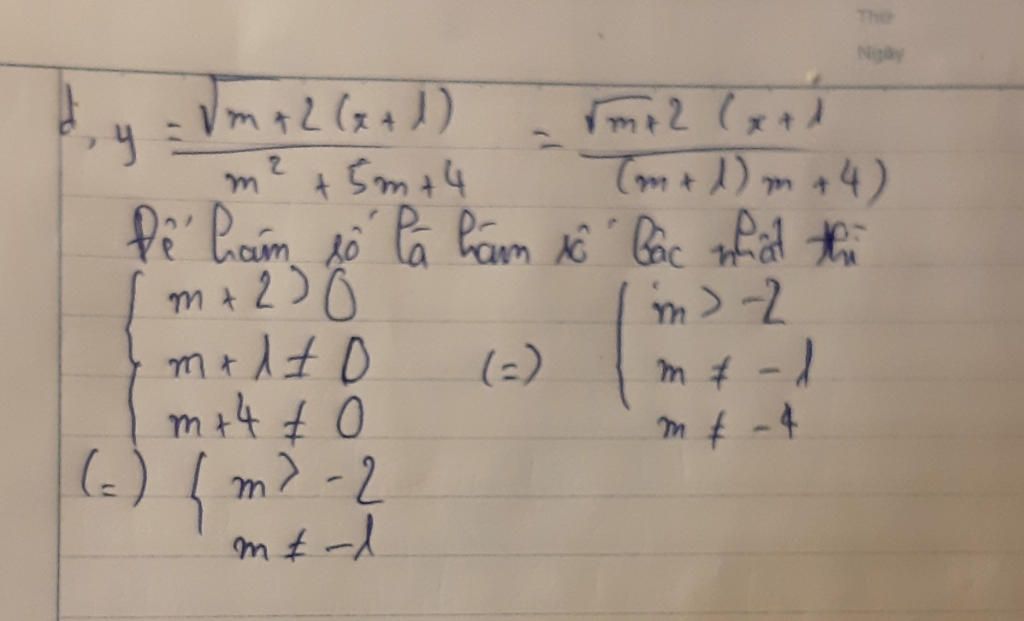 Thứ
Ngày
d, y = √m+2 (x+1) / m² + 5m+4 = √m+2 (x+1 / (m+1) m +4)
Để hàm số là hàm số bậc nhất thì
{ m+2 > 0
m+1 ≠ 0
m+4 ≠ 0
(=) { m > -2
m ≠ -1
m ≠ -4
(=) { m > -2
m ≠ -1